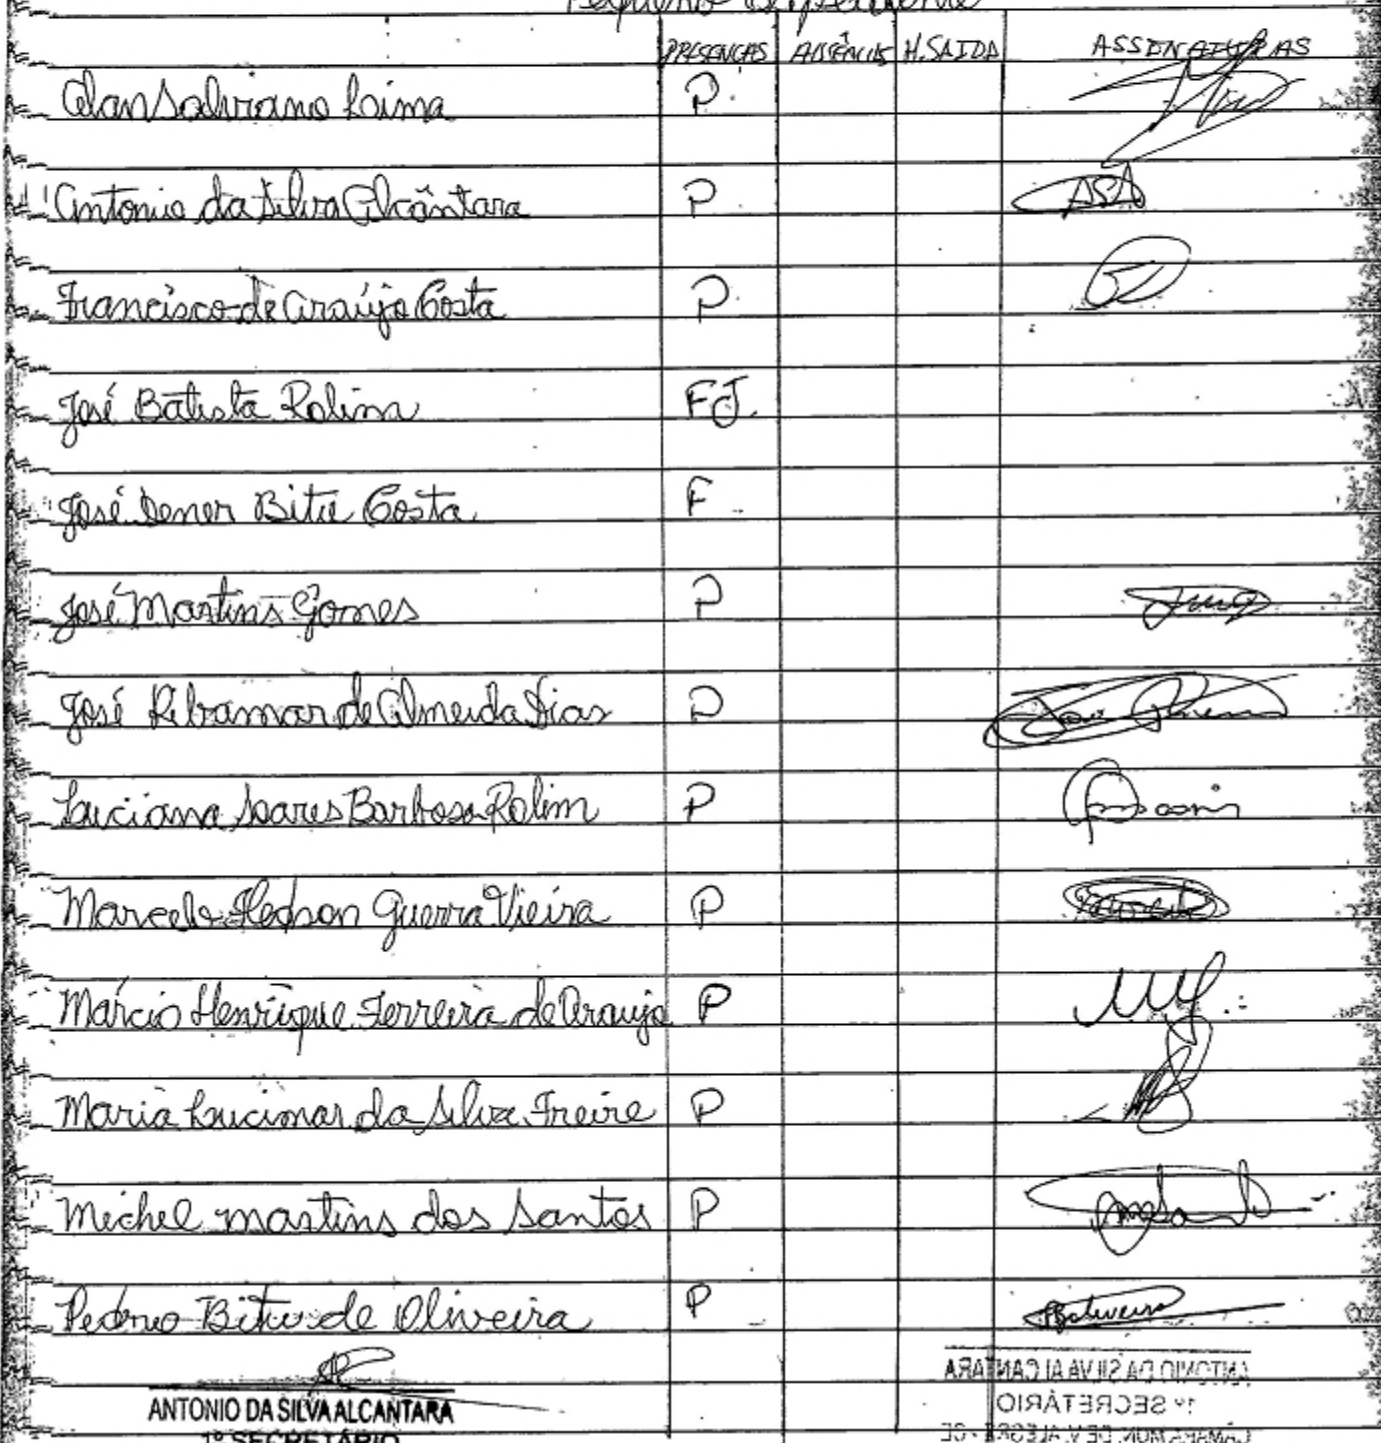 Pequeno Expediente
PRESENÇAS AUSÊNCIAS H. SAIDA ASSINATURAS
Alan Salviano Lima P
Antonio da Silva Alcântara P ASA
Francisco de Araújo Costa P
José Batista Rolim FJ.
José Dener Bitu Costa F
José Martins Gomes P
José Ribamar de Almeida Dias P
Luciana Soares Barbosa Rolim P
Marcelo Hedson Guerra Vieira P
Márcio Henrique Ferreira de Araujo P
Maria Lucimar da Silva Freire P
Michel Martins dos Santos P
Pedro Bitu de Oliveira P
ANTONIO DA SILVA ALCANTARA
1º SECRETÁRIO
ANTONIO DA SILVA ALCANTARA
1º SECRETÁRIO